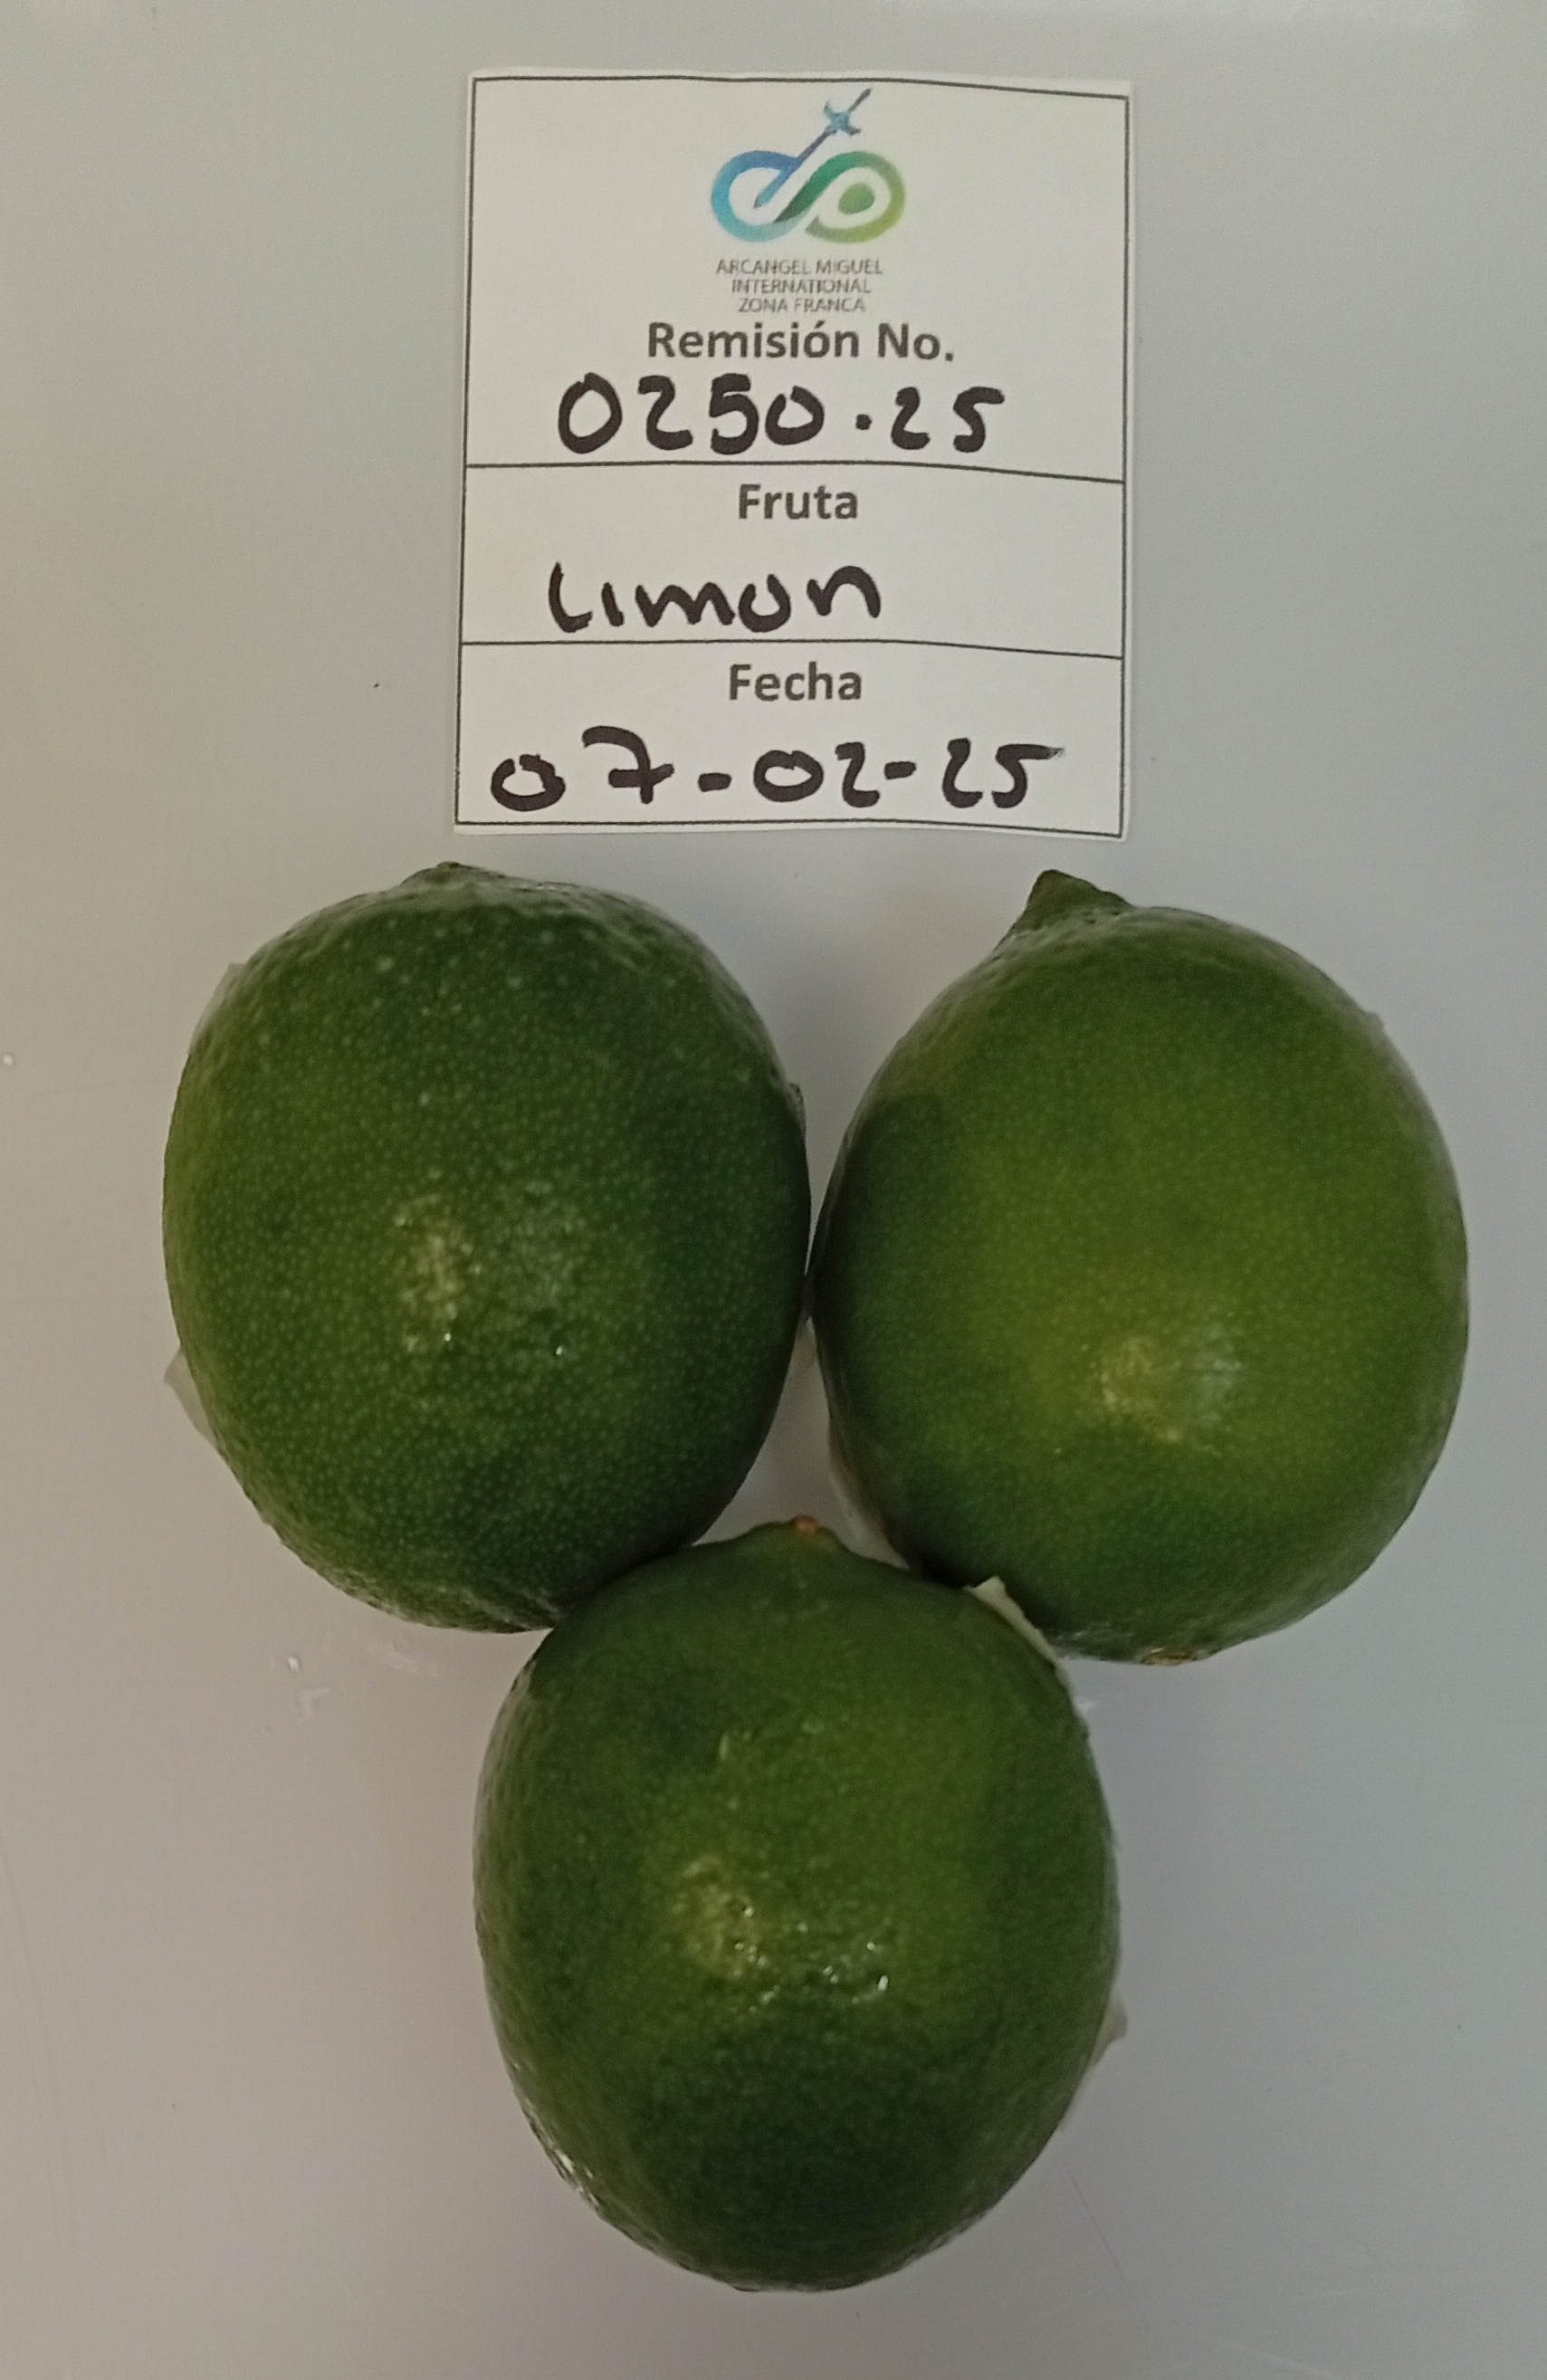 ARCANGEL MIGUEL
INTERNATIONAL
ZONA FRANCA
Remisión No.
0250.25
Fruta
Limon
Fecha
07-02-25